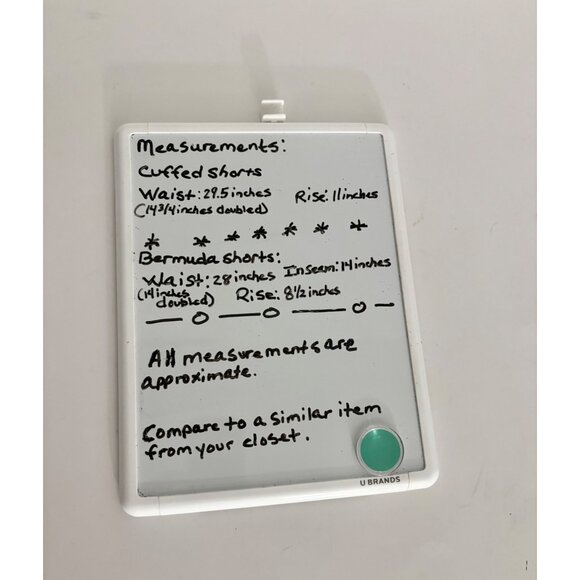 Measurements:
Cuffed shorts
Waist: 29.5 inches Rise: 11 inches
(14 3/4 inches doubled)
* * * * * * *
Bermuda shorts:
Waist: 28 inches Inseam: 14 inches
(14 inches doubled) Rise: 8 1/2 inches
All measurements are
approximate.
Compare to a similar item
from your closet.
U BRANDS